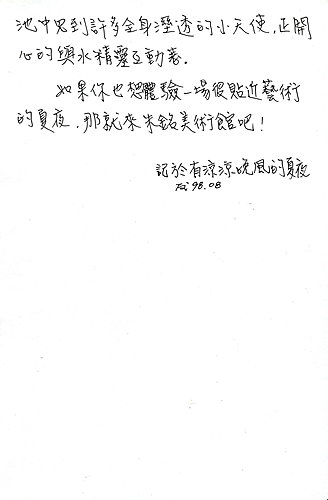 池中見到許多全身溼透的小天使,正開
心的與水精靈互動著.
如果你也想體驗一場很貼近藝術
的夏夜,那就來朱銘美術館吧!
記於有涼涼晚風的夏夜
98.08